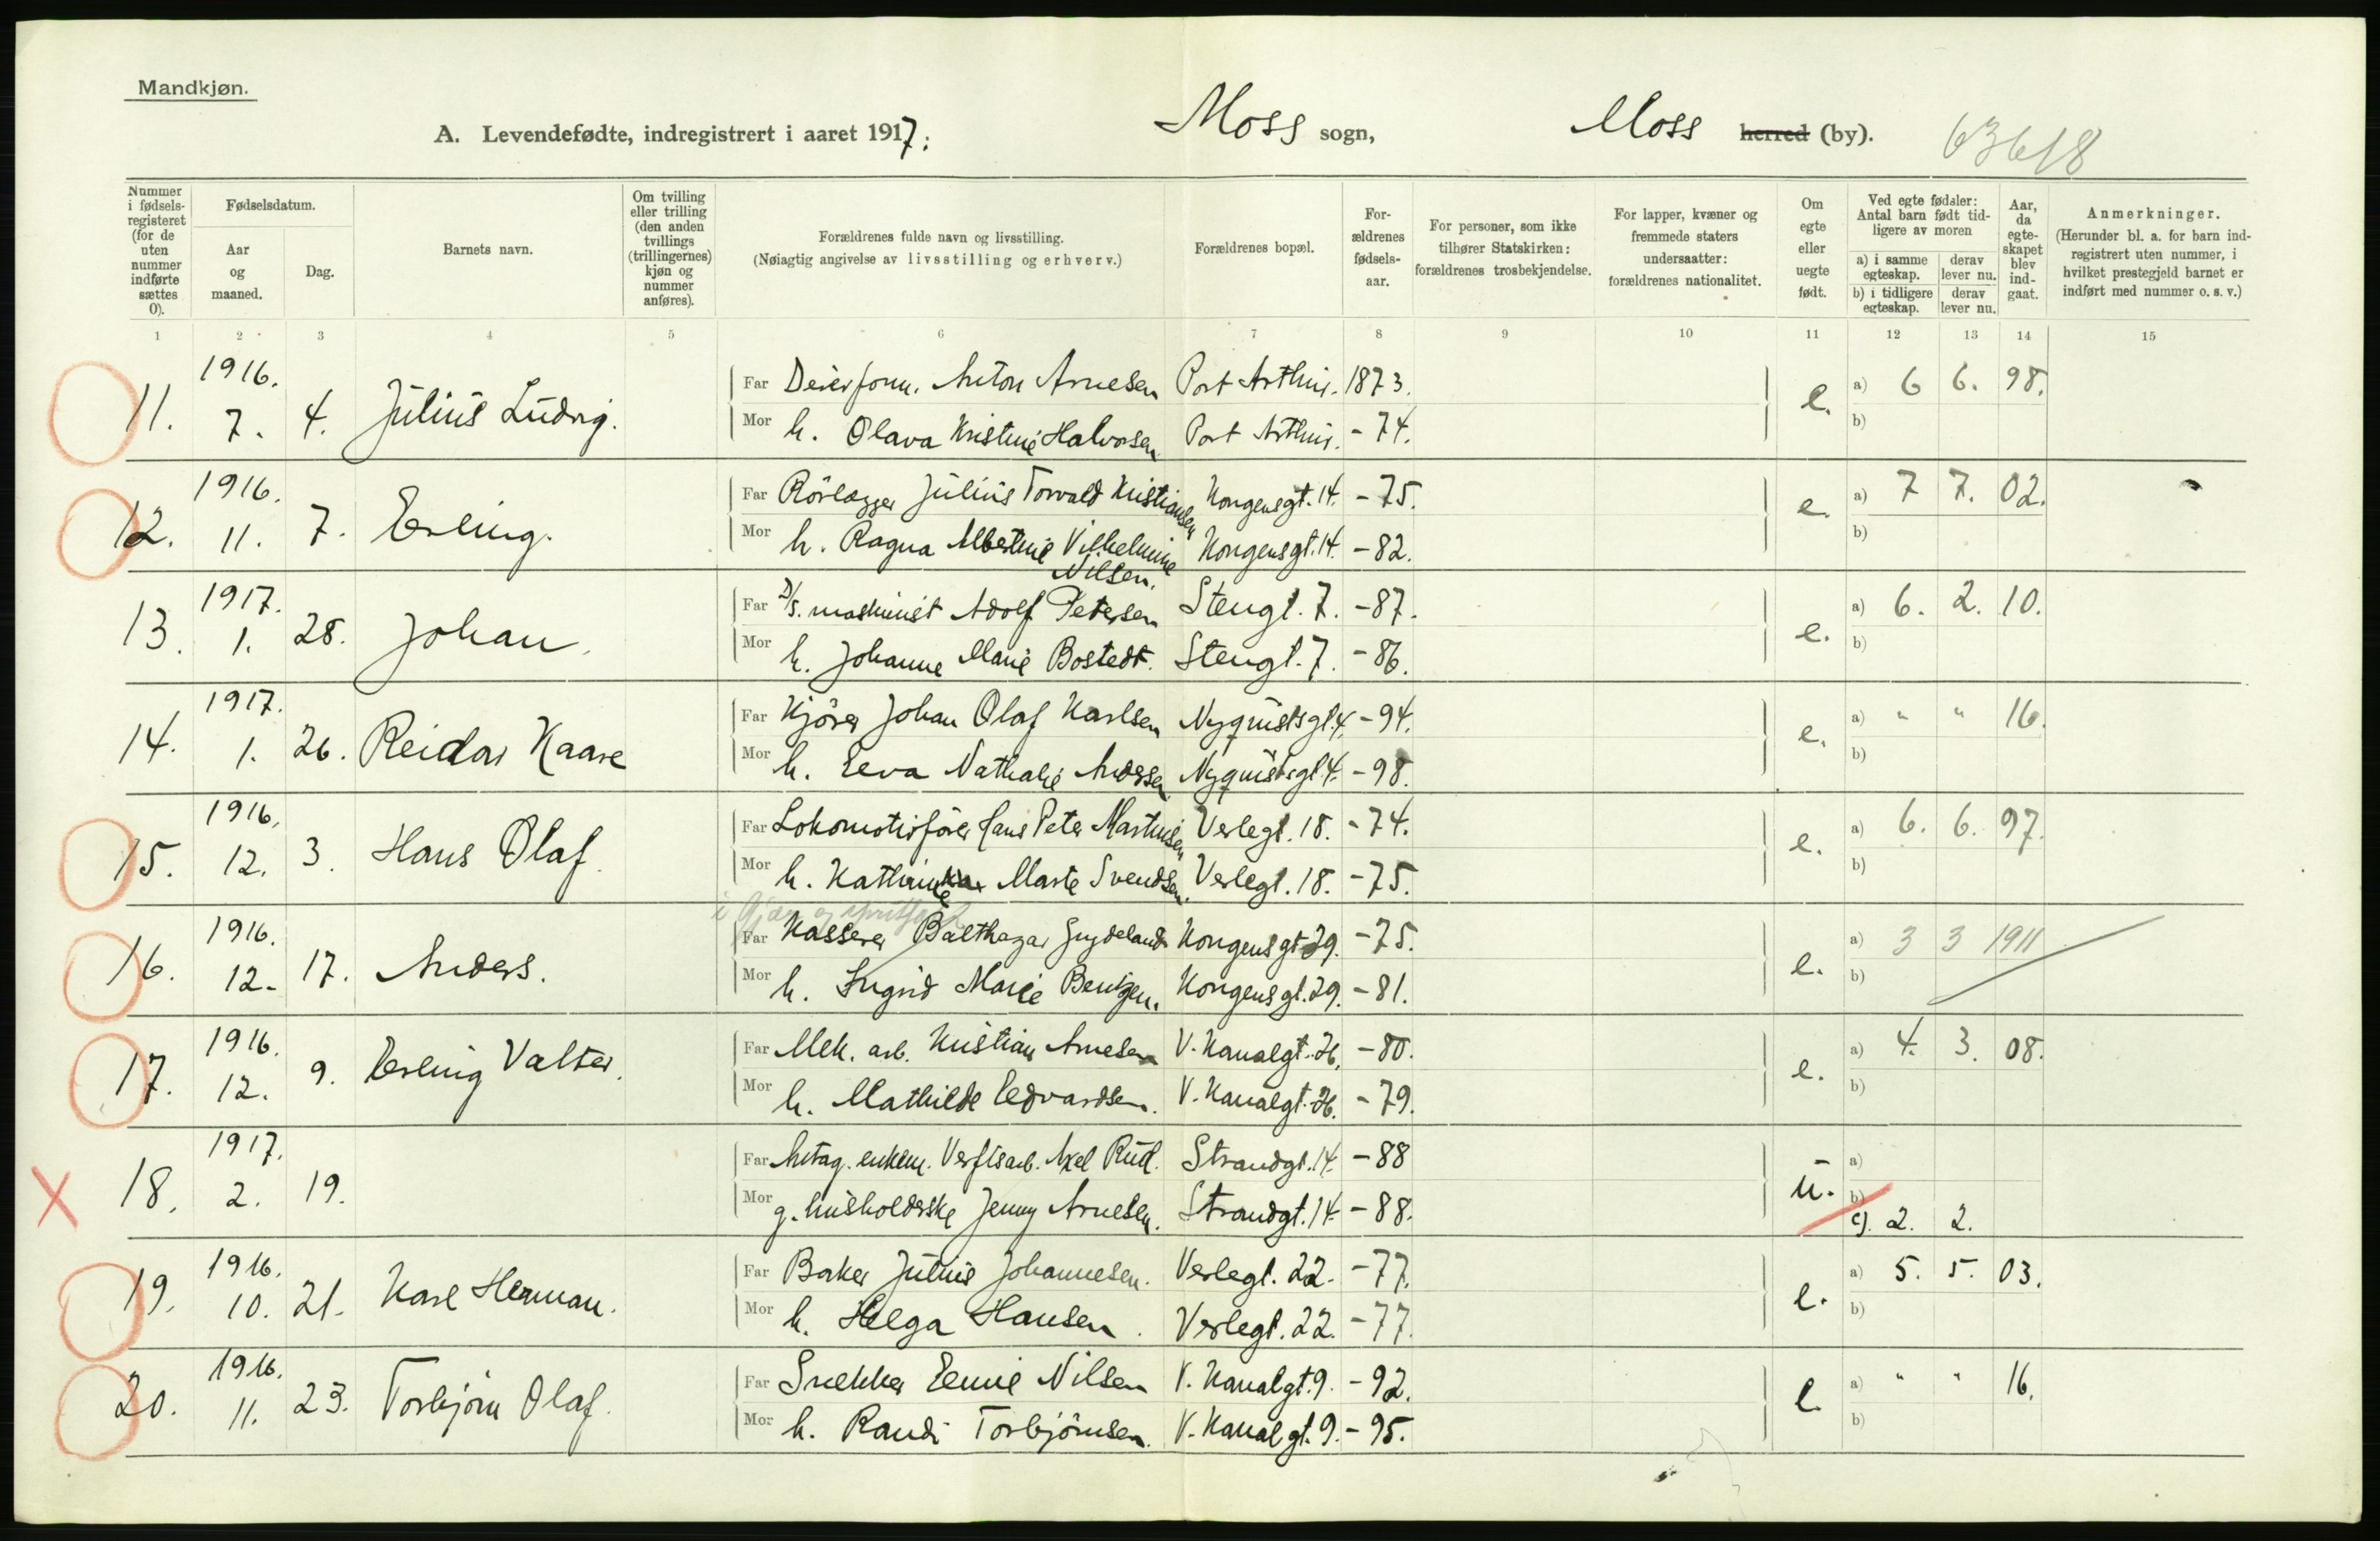 Mandkjøn.
A. Levendefødte, indregistrert i aaret 1917; Moss sogn, Moss herred (by). 63618
Nummer i fødsels-registeret (for de uten nummer indførte sættes 0).
Fødselsdatum.
Aar og maaned.
Dag.
Barnets navn.
Om tvilling eller trilling (den anden tvillings (trillingernes) kjøn og nummer anføres).
Forældrenes fulde navn og livsstilling.
(Nøiagtig angivelse av livsstilling og erhverv.)
Forældrenes bopæl.
For-ældrenes fødsels-aar.
For personer, som ikke tilhører Statskirken: forældrenes trosbekjendelse.
For lapper, kvæner og fremmede staters undersaatter: forældrenes nationalitet.
Om egte eller uegte født.
Ved egte fødsler: Antal barn født tid-ligere av moren
a) i samme egteskap. derav lever nu.
b) i tidligere egteskap. derav lever nu.
Aar, da egte-skapet blev ind-gaat.
Anmerkninger.
(Herunder bl. a. for barn ind-registrert uten nummer, i hvilket prestegjeld barnet er indført med nummer o. s. v.)
1 2 3 4 5 6 7 8 9 10 11 12 13 14 15
11. 1916. 7. 4. Julius Ludvig. Far Anton Arnesen Port Arthur. 1873. e. a) 6 6. 98.
Mor h. Olava Kristine Halvorsen Port Arthur. - 74. b)
12. 1916. 11. 7. Erling. Far Rörlægger Julius Torvald Kristiansen Kongensgt. 14. - 75. e. a) 7 7. 02.
Mor h. Ragna Albertine Vilhelmine Nilsen. Kongensgt. 14. - 82. b)
13. 1917. 1. 28. Johan. Far D/S. maskinist Adolf Petersen Stengt. 7. - 87. e. a) 6. 2. 10.
Mor h. Johanne Marie Bostedt. Stengt. 7. - 86. b)
14. 1917. 1. 26. Reidar Kaare Far Kjörer Johan Olaf Karlsen Nyquistsgt. 4. - 94. e. a) " " 16.
Mor h. Eeva Nathalie Anderssen Nyquistsgt. 4. - 98. b)
15. 1916. 12. 3. Hans Olaf. Far Lokomotivförer Hans Peter Martinsen Verlegt. 18. - 74. e. a) 6. 6. 97.
Mor h. Kathrine Marte Svendsen. Verlegt. 18. - 75. b)
i Gjær og spritfabr.
16. 1916. 12. 17. Anders. Far Kasserer Balthazar Gydeland Kongensgt. 29. - 75. e. a) 3 3 1911
Mor h. Ingrid Marie Bentzen. Kongensgt. 29. - 81. b)
17. 1916. 12. 9. Erling Valter. Far Mek. arb. Kristian Arnesen V. Kanalgt. 26. - 80. e. a) 4. 3. 08.
Mor h. Mathilde Edvardsen. V. Kanalgt. 26. - 79. b)
18. 1917. 2. 19. Far Antag. enkem. Verftsarb. Axel Rud. Strandgt. 14. - 88 u. a)
Mor g. husholderske Jenny Arnesen. Strandgt. 14 - 88. b)
c). 2. 2.
19. 1916. 10. 21. Karl Herman. Far Baker Julius Johannesen. Verlegt. 22. - 77. e. a) 5. 5. 03.
Mor h. Helga Hansen. Verlegt. 22. - 77. b)
20. 1916. 11. 23. Torbjörn Olaf. Far Snekker Nilsen V. Kanalgt. 9. - 92. e. a) " " 16.
Mor h. Randi Torbjörnsen. V. Kanalgt. 9. - 95. b)